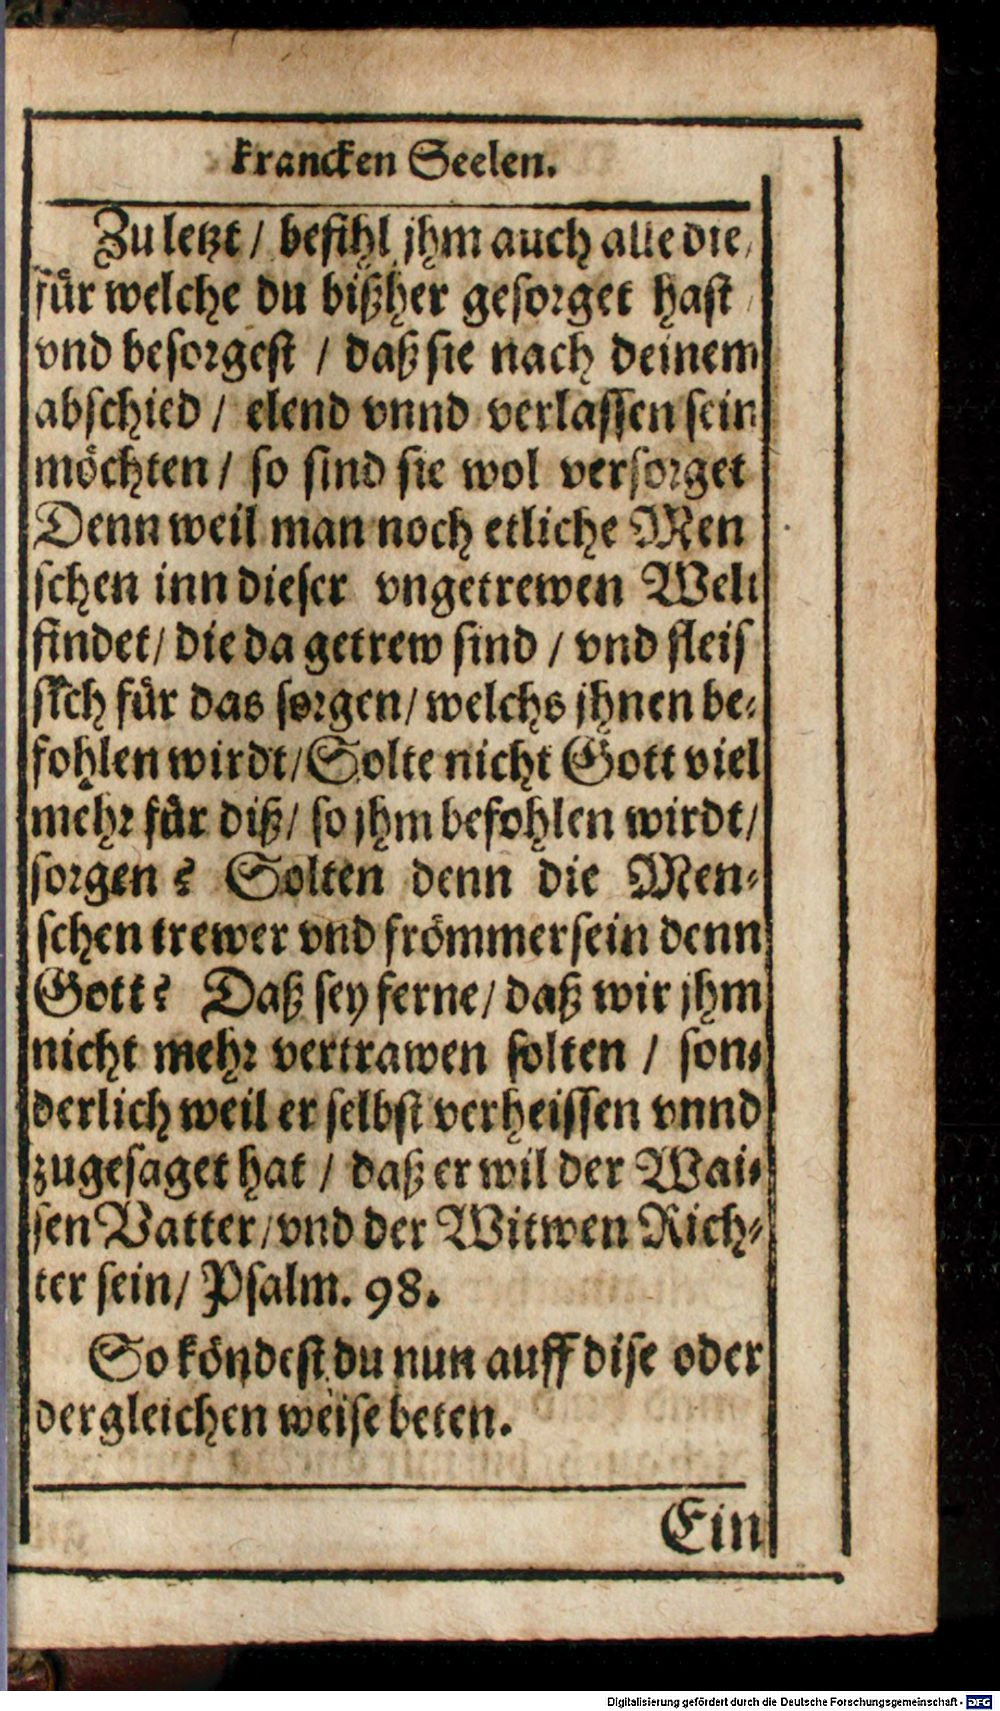 krancken Seelen.
Zu letzt / befihl jhm auch alle die /
für welche du bißher gesorget hast /
vnd besorgest / daß sie nach deinem
abschied / elend vnnd verlassen sein
möchten / so sind sie wol versorget
Denn weil man noch etliche Men
schen inn dieser vngetrewen Welt
findet / die da getrew sind / vnd fleis
sich für das sorgen / welchs jhnen be-
fohlen wirdt / Solte nicht Gott viel
mehr für diß / so jhm befohlen wirdt /
sorgen? Solten denn die Men-
schen trewer vnd frömmer sein denn
Gott? Daß sey ferne / daß wir jhm
nicht mehr vertrawen solten / son-
derlich weil er selbst verheissen vnnd
zugesaget hat / daß er wil der Wai-
sen Vatter / vnd der Witwen Rich-
ter sein / Psalm. 98.
So köndest du nun auff dise oder
dergleichen weise beten.
Ein
Digitalisierung gefördert durch die Deutsche Forschungsgemeinschaft - DFG